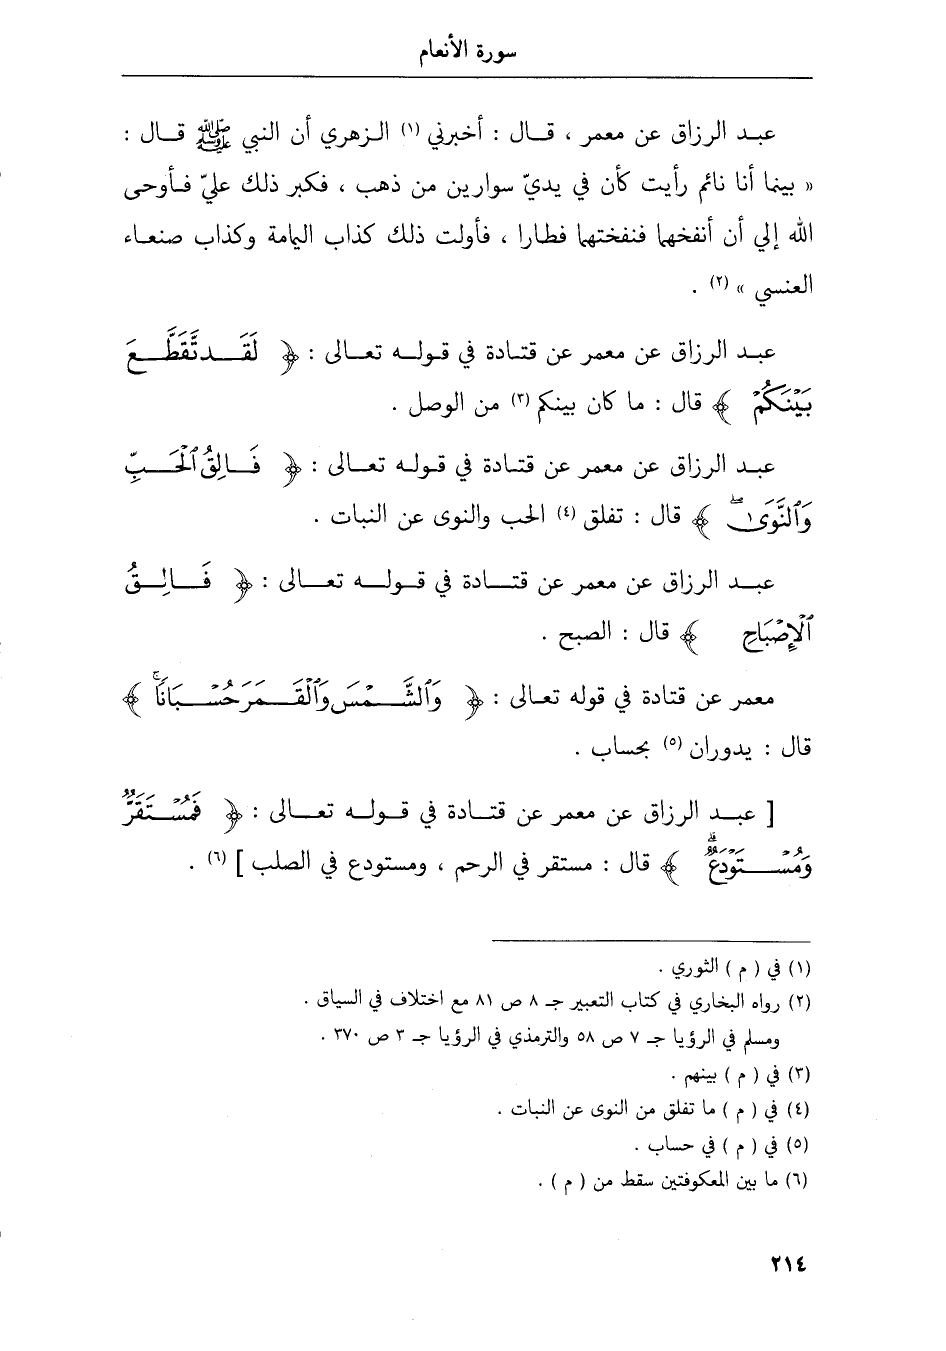 سورة الأنعام
عبد الرزاق عن معمر ، قال : أخبرني (١) الزهري أن النبي ﷺ قال :
« بينما أنا نائم رأيت كأن في يديّ سوارين من ذهب ، فكبر ذلك عليّ فأوحى
الله إلي أن أنفخهما فنفختهما فطارا ، فأولت ذلك كذاب اليمامة وكذاب صنعاء
العنسي » (٢) .
عبد الرزاق عن معمر عن قتادة في قوله تعالى : ﴿ لَقَد تَّقَطَّعَ
بَيْنَكُمْ ﴾ قال : ما كان بينكم (٣) من الوصل .
عبد الرزاق عن معمر عن قتادة في قوله تعالى : ﴿ فَالِقُ ٱلْحَبِّ
وَٱلنَّوَىٰۖ ﴾ قال : تفلق (٤) الحب والنوى عن النبات .
عبد الرزاق عن معمر عن قتادة في قوله تعالى : ﴿ فَالِقُ
ٱلْإِصْبَاحِ ﴾ قال : الصبح .
معمر عن قتادة في قوله تعالى : ﴿ وَٱلشَّمْسَ وَٱلْقَمَرَ حُسْبَانًاۚ ﴾
قال : يدوران (٥) بحساب .
[ عبد الرزاق عن معمر عن قتادة في قوله تعالى : ﴿ فَمُسْتَقَرٌّ
وَمُسْتَوْدَعٌۗ ﴾ قال : مستقر في الرحم ، ومستودع في الصلب ] (٦) .
(١) في ( م ) الثوري .
(٢) رواه البخاري في كتاب التعبير جـ ٨ ص ٨١ مع اختلاف في السياق .
ومسلم في الرؤيا جـ ٧ ص ٥٨ والترمذي في الرؤيا جـ ٣ ص ٣٧٠ .
(٣) في ( م ) بينهم .
(٤) في ( م ) ما تفلق من النوى عن النبات .
(٥) في ( م ) في حساب .
(٦) ما بين المعكوفتين سقط من ( م ) .
٢١٤